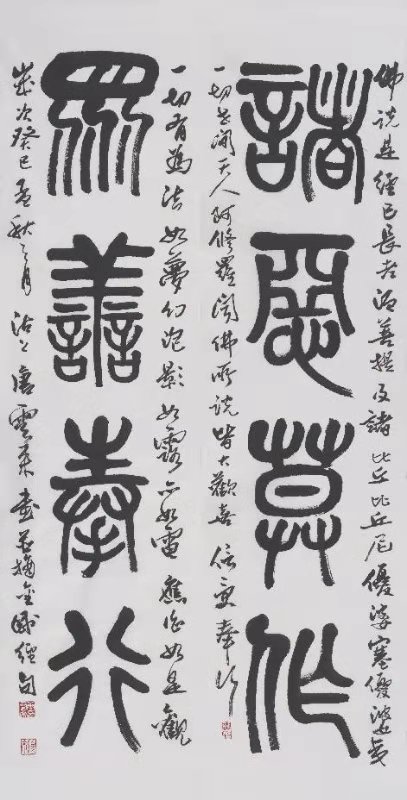 佛說是經已長老須菩提及諸比丘比丘尼優婆塞優婆夷
諸惡莫作
一切世間天人阿修羅聞佛所說皆大歡喜信受奉行
一切有為法如夢幻泡影如露亦如電應作如是觀
眾善奉行
歲次癸巳孟秋之月沽上唐雲來書並摘金剛經句